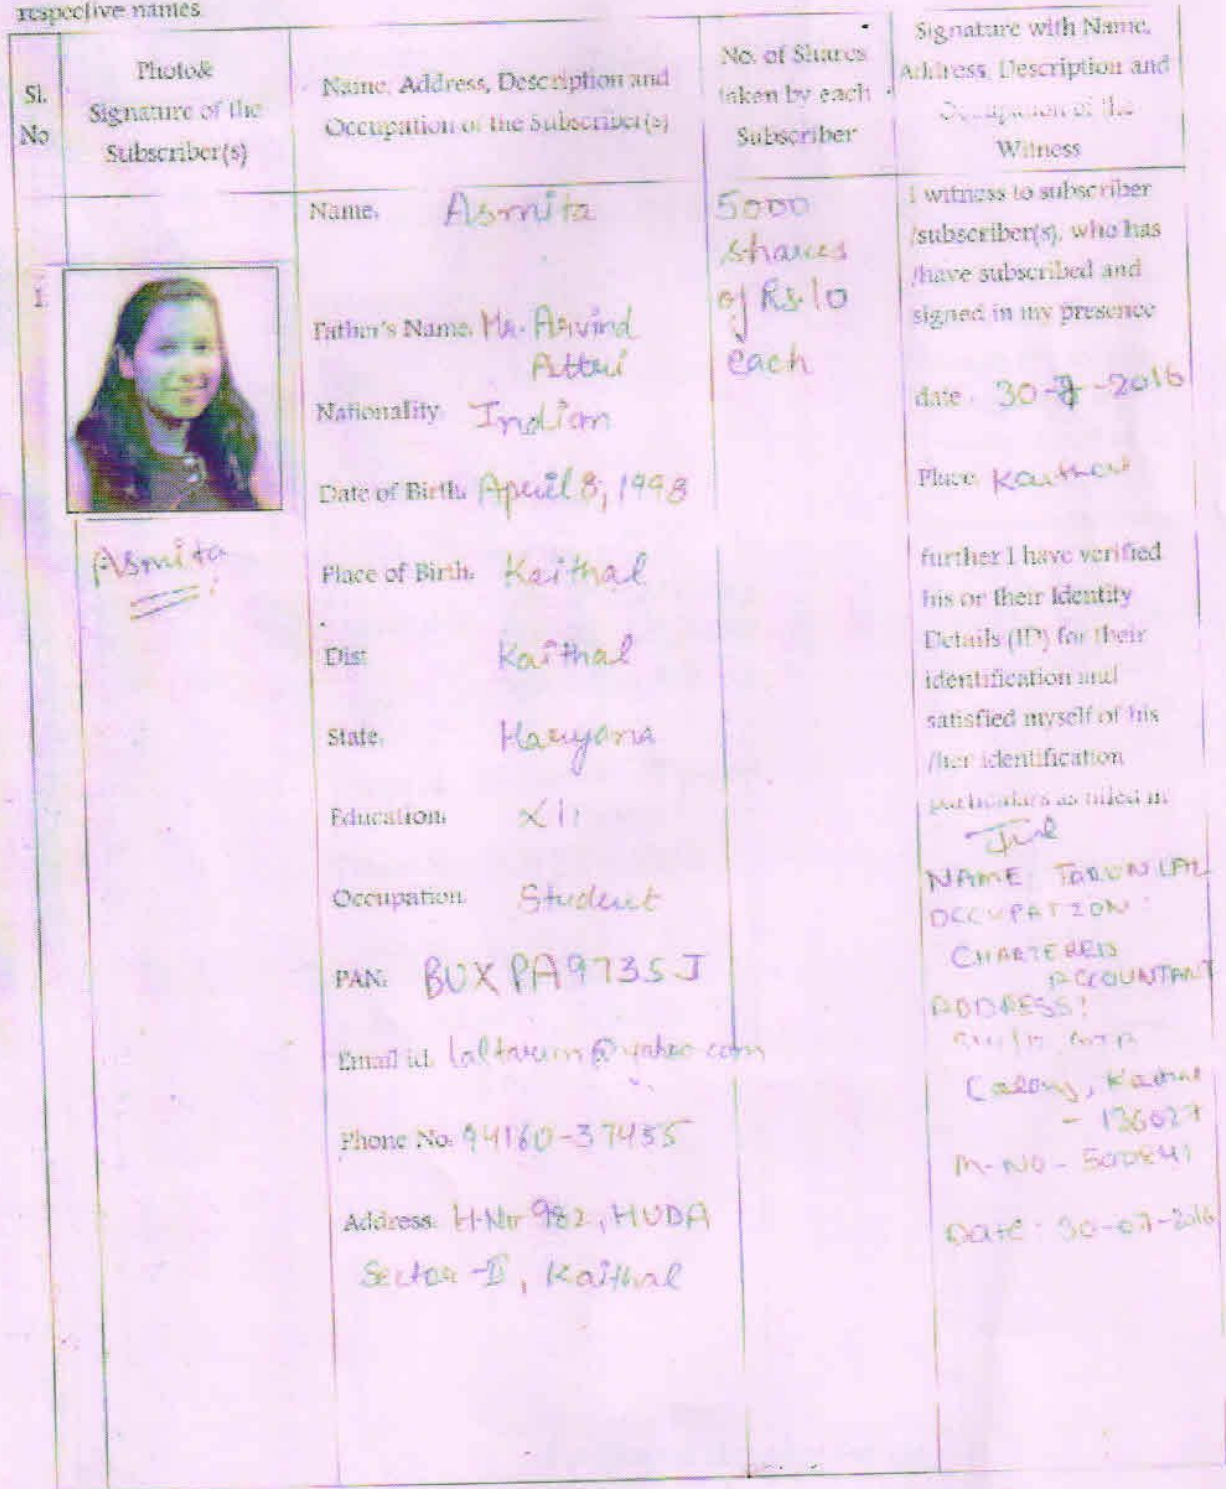 respective names
Sl.
No
Photo&
Signature of the
Subscriber(s)
Name, Address, Description and
Occupation of the Subscriber(s)
No. of Shares
taken by each
Subscriber
Signature with Name,
Address, Description and
Occupation of the
Witness
1
Asmita
Name. Asmita
Father's Name. Mr. Arvind
Attri
Nationality. Indian
Date of Birth. April 8, 1998
Place of Birth. Kaithal
Dist Kaithal
State. Haryana
Education. XII
Occupation. Student
PAN. BUXPA9735J
Email id. laltarun@yahoo.com
Phone No. 94160-37455
Address. H.No 982, HUDA
Sector-II, Kaithal
5000
shares
of Rs.10
each
I witness to subscriber
/subscriber(s), who has
/have subscribed and
signed in my presence
date. 30-7-2016
Place. Kaithal
further I have verified
his or their Identity
Details (ID) for their
identification and
satisfied myself of his
/her identification
particulars as filled in
NAME TARUN LAL
OCCUPATION:
CHARTERED
ACCOUNTANT
ADDRESS:
Colony, Kaithal
- 136027
M-NO- 500841
Date: 30-07-2016